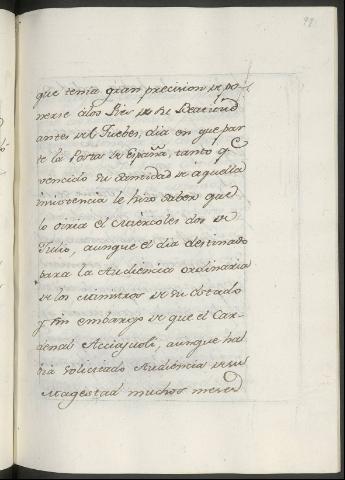 99.
que tenia gran precision de po-
nerse á los Pies de Su Beatitud
antes del Juebes, dia en que par
te la Posta de España, tanto qe
vencido Su Santidad de aquella
insistencia le hizo saber que
lo oiria el Miercoles dos de
Julio, aunque el dia destinado
para la Audiencia ordinaria
de los Ministros de Su Estado
y sin embargo de que el Car-
denal Acciajuoli, aunque ha
via solicitado Audiencia de Su
Magestad muchos meses